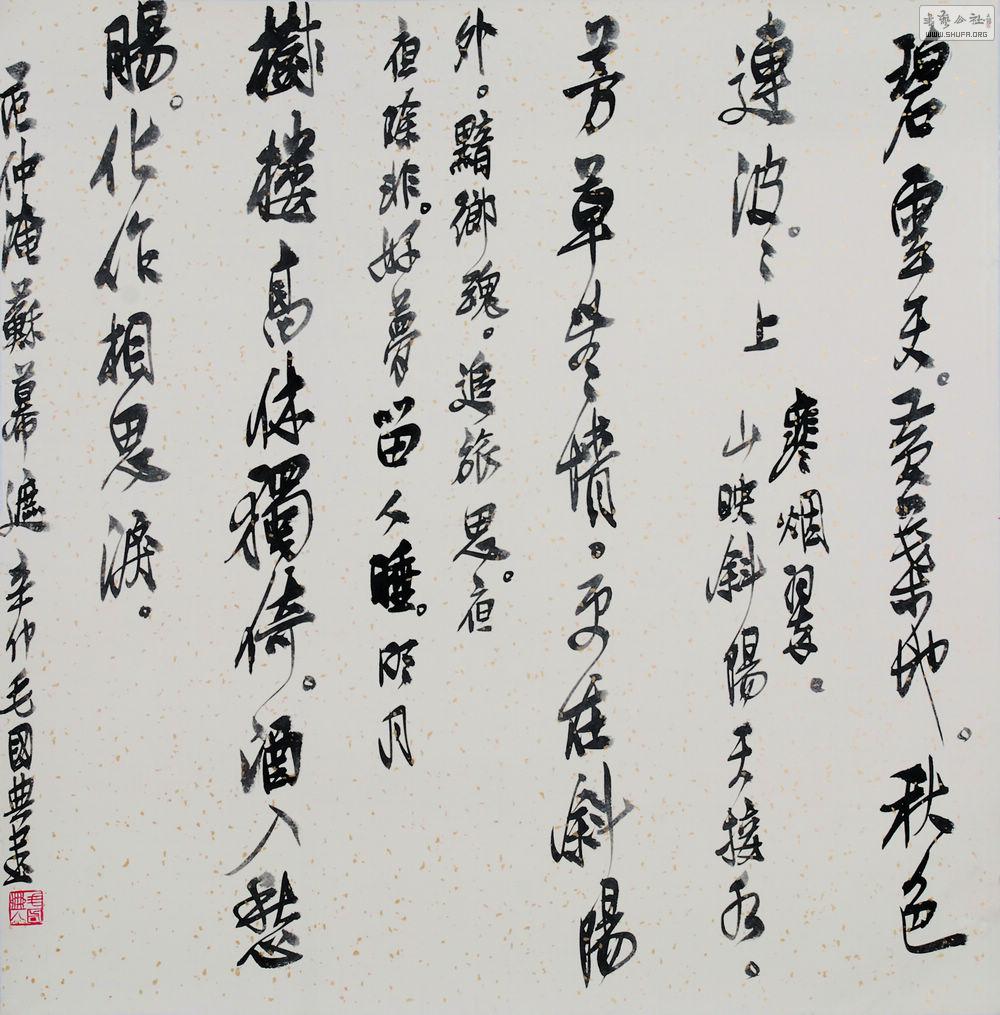 碧雲天。黃葉地。秋色
連波。〻上
寒烟翠。
山映斜陽天接水。
芳草無情。更在斜陽
外。黯鄉魂。追旅思。夜
夜除非。好夢留人睡。明月
樹樓高休獨倚。酒入愁
腸。化作相思淚。
范仲淹蘇幕遮 辛卯毛國典書
WWW.SHUFA.ORG